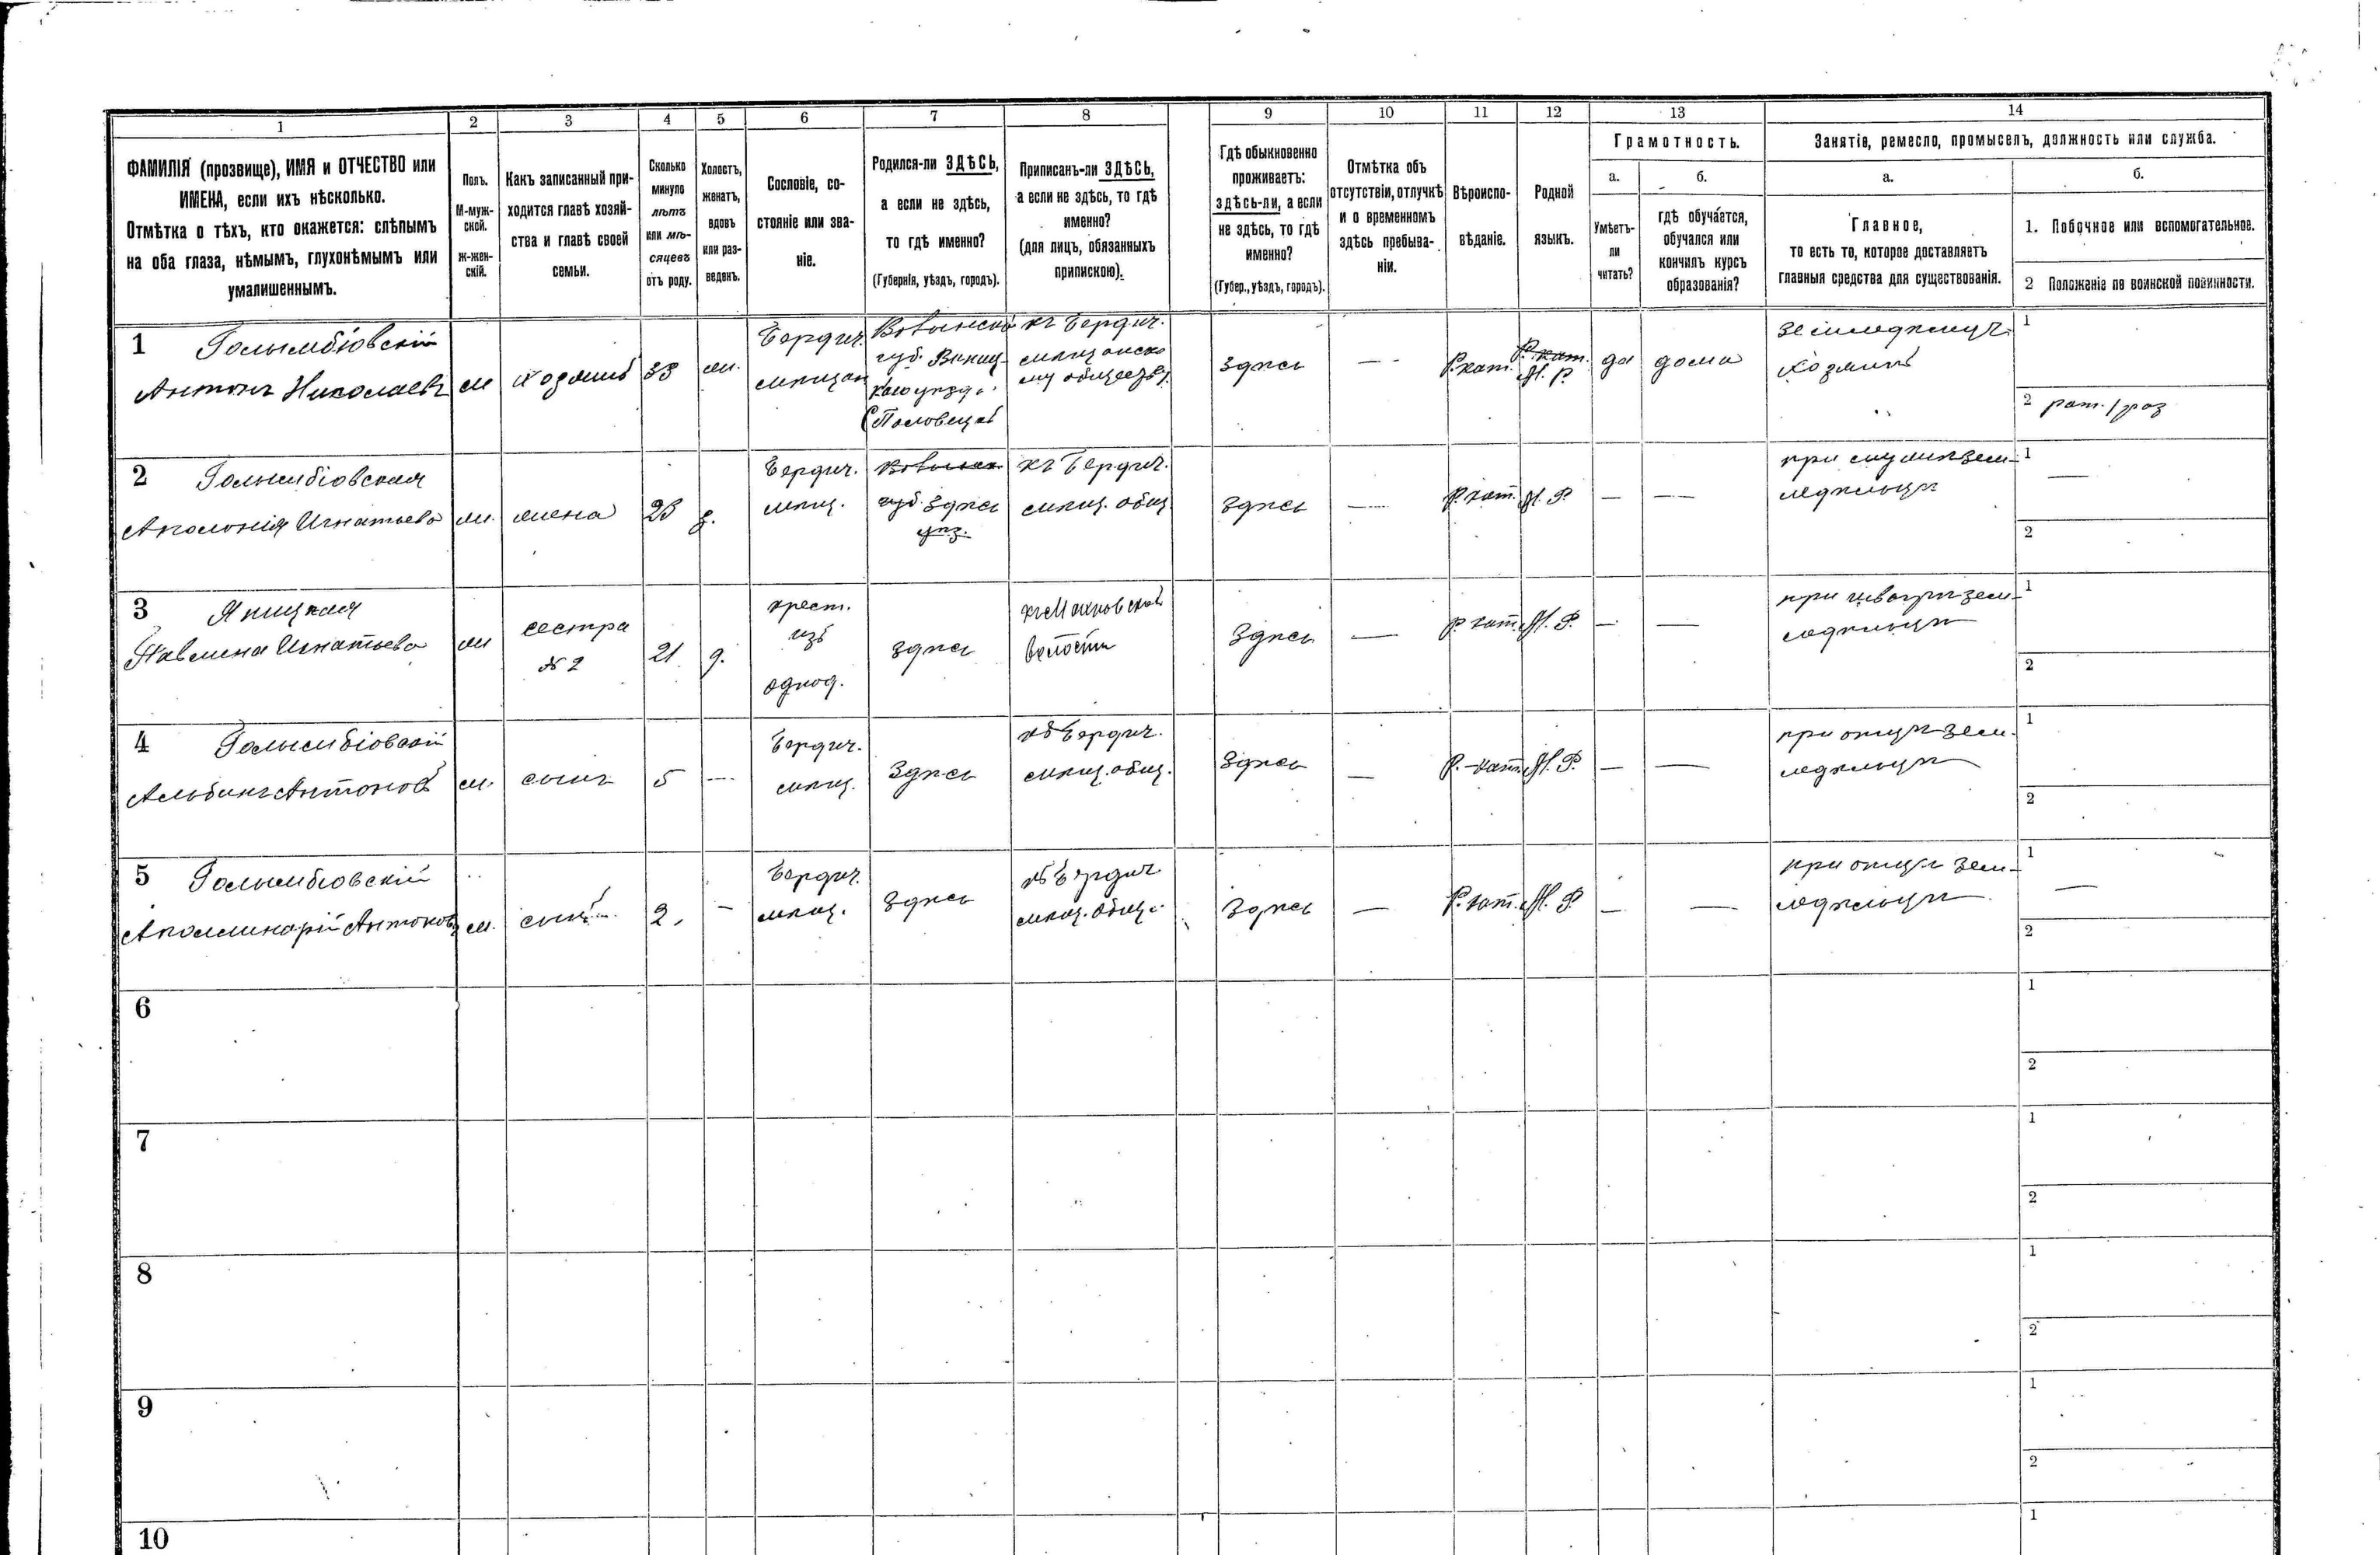 1
2
3
4
5
6
7
8
9
10
11
12
13
14
ФАМИЛІЯ (прозвище), ИМЯ и ОТЧЕСТВО или
ИМЕНА, если ихъ нѣсколько.
Отмѣтка о тѣхъ, кто окажется: слѣпымъ
на оба глаза, нѣмымъ, глухонѣмымъ или
умалишеннымъ.
Полъ.
М-муж-
ской.
ж-жен-
скій.
Какъ записанный при-
ходится главѣ хозяй-
ства и главѣ своей
семьи.
Сколько
минуло
лѣтъ
или мѣ-
сяцевъ
отъ роду.
Холостъ,
женатъ,
вдовъ
или раз-
веденъ.
Сословіе, со-
стояніе или зва-
ніе.
Родился-ли ЗДѢСЬ,
а если не здѣсь,
то гдѣ именно?
(Губернія, уѣздъ, городъ).
Приписанъ-ли ЗДѢСЬ,
а если не здѣсь, то гдѣ
именно?
(для лицъ, обязанныхъ
припискою).
Гдѣ обыкновенно
проживаетъ:
здѣсь-ли, а если
не здѣсь, то гдѣ
именно?
(Губер., уѣздъ, городъ).
Отмѣтка объ
отсутствіи, отлучкѣ
и о временномъ
здѣсь пребыва-
ніи.
Вѣроиспо-
вѣданіе.
Родной
языкъ.
Грамотность.
а.
Умѣетъ-
ли
читать?
б.
гдѣ обучается,
обучался или
кончилъ курсъ
образованія?
Занятіе, ремесло, промыселъ, должность или служба.
а.
Главное,
то есть то, которое доставляетъ
главныя средства для существованія.
б.
1. Побочное или вспомогательное.
2 Положеніе по воинской повинности.
1
Голымбіовскій
Антонъ Николаевъ
м
хозяинъ
33
ж.
Бердич.
мѣщан
Волынской
губ. Винни-
каго уѣзда
Половецкѣ
къ Бердич.
мѣщанско
му обществу
здѣсь
— -
Р.кат.
Р.кат.
П. Р.
да
дома
земледѣлецъ
хозяинъ
1
2 рат. 1 раз
2
Голымбіовская
Аполонія Игнатьева
ж.
жена
23
з.
Бердич.
мѣщ.
Волынск
губ. здѣсь
уѣз.
къ Бердич.
мѣщ. общ.
здѣсь
—
Р. кат.
П. Р.
—
—
при мужѣ зем-
ледѣльцѣ
1 —
2
3
Яницкая
Павлина Игнатьева
ж
сестра
№ 2
21
д.
крест.
изъ
однод.
здѣсь
къ Махновской
волости
здѣсь
—
Р. кат.
П. Р.
—
—
при шваґрѣ зем-
ледѣльцѣ
1
2
4
Голымбіовскій
Альбинъ Антоновъ
м.
сынъ
5
—
Бердич.
мѣщ.
здѣсь
къ Бердич.
мѣщ. общ.
здѣсь
—
Р.-кат.
П. Р.
—
—
при отцѣ зем-
ледѣльцѣ
1
2
5
Голымбіовскій
Аполлинарій Антоновъ
м.
сынъ
2.
—
Бердич.
мѣщ.
здѣсь
къ Бердич
мѣщ. общ.
здѣсь
—
Р. кат.
П. Р.
—
—
при отцѣ зем-
ледѣльцѣ
1 —
2
6
1
2
7
1
2
8
1
2
9
1
2
10
1